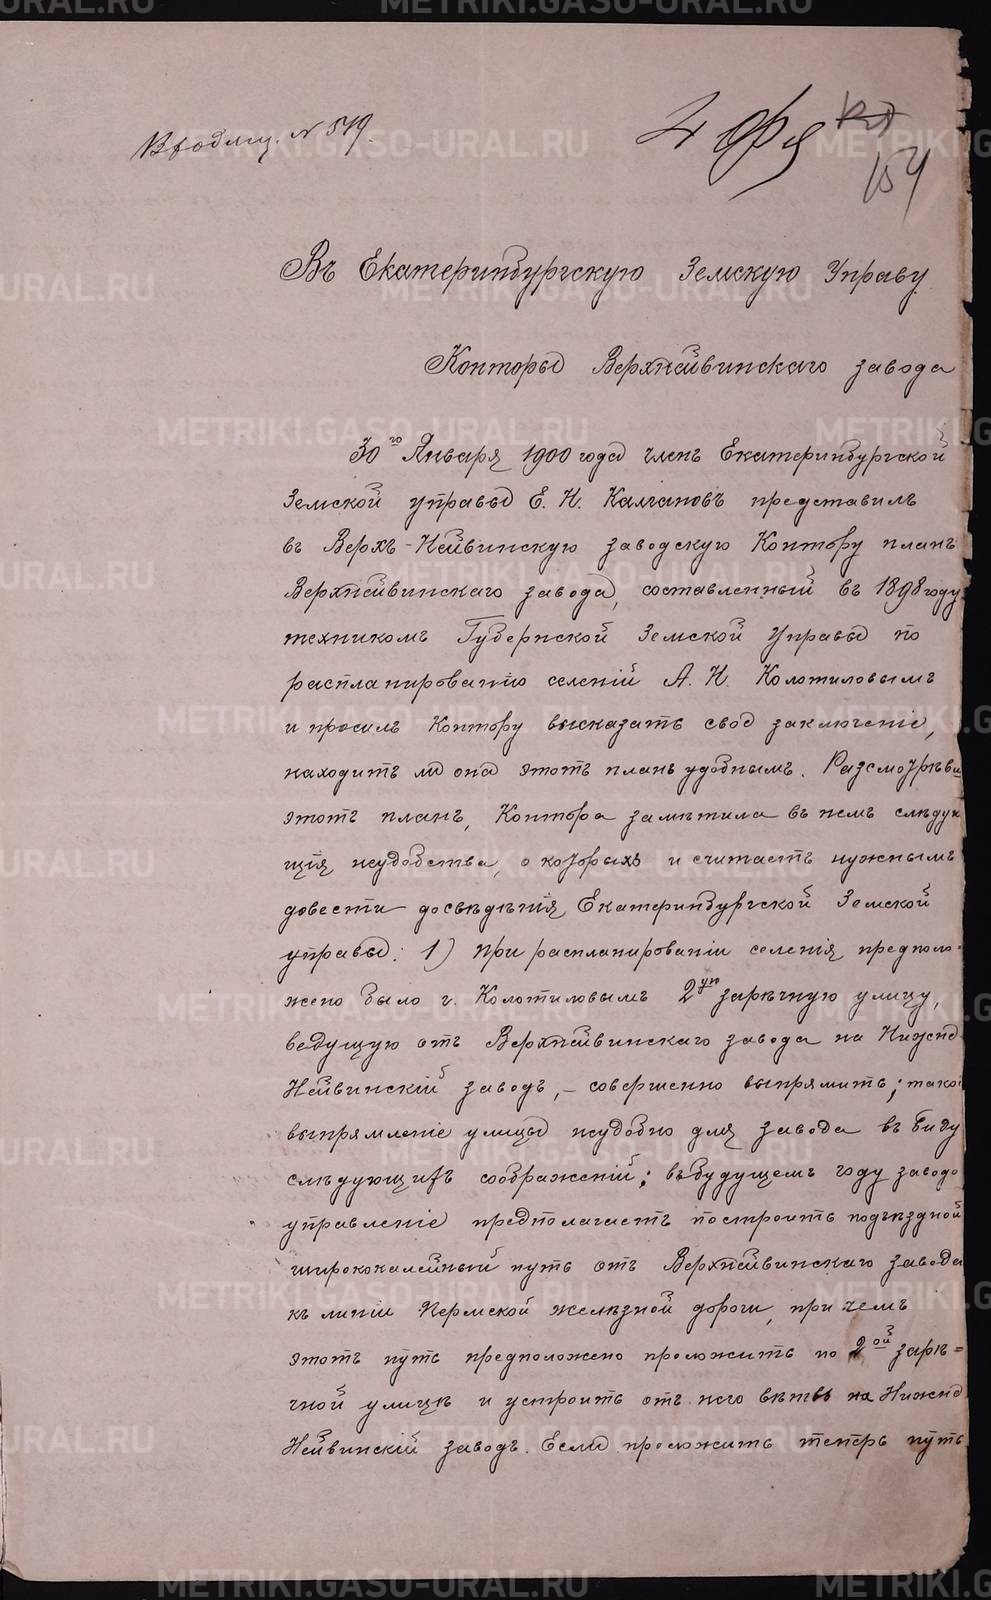 Входящ. № 519.
4 Фя
154
Въ Екатеринбургскую Земскую Управу
Конторы Верхнейвинскаго завода
30го Января 1900 года членъ Екатеринбургской
Земской управы Е. Н. Калгановъ представилъ
въ Верхъ-Нейвинскую заводскую Контору планъ
Верхнейвинскаго завода, составленный въ 1898 году
техникомъ Губернской Земской Управы по
распланированію селеній А. Н. Колотиловымъ
и просилъ Контору высказать своё заключеніе,
находитъ ли она этотъ планъ удобнымъ. Разсмотрѣвъ
этотъ планъ, Контора замѣтила въ немъ слѣдую
щія неудобства, о которыхъ и считаетъ нужнымъ
довести до свѣдѣнія Екатеринбургской Земской
управы: 1) При распланированіи селенія предполо-
жено было г. Колотиловымъ 2ую зарѣчную улицу,
ведущую отъ Верхнейвинскаго завода на Нижне
Нейвинскій заводъ, – совершенно выпрямить; такое
выпрямленіе улицы неудобно для завода въ виду
слѣдующихъ соображеній: въ будущемъ году заводо
управленіе предполагаетъ построить подъѣздной
ширококалейный путь отъ Верхнейвинскаго завода
къ линіи Пермской желѣзной дороги, при чемъ
этотъ путь предположено проложить по 2ой зарѣ=
чной улицѣ и устроить отъ него вѣтвь на Нижне
Нейвинскій заводъ. Если проложить теперь путь
METRIKI.GASO-URAL.RU